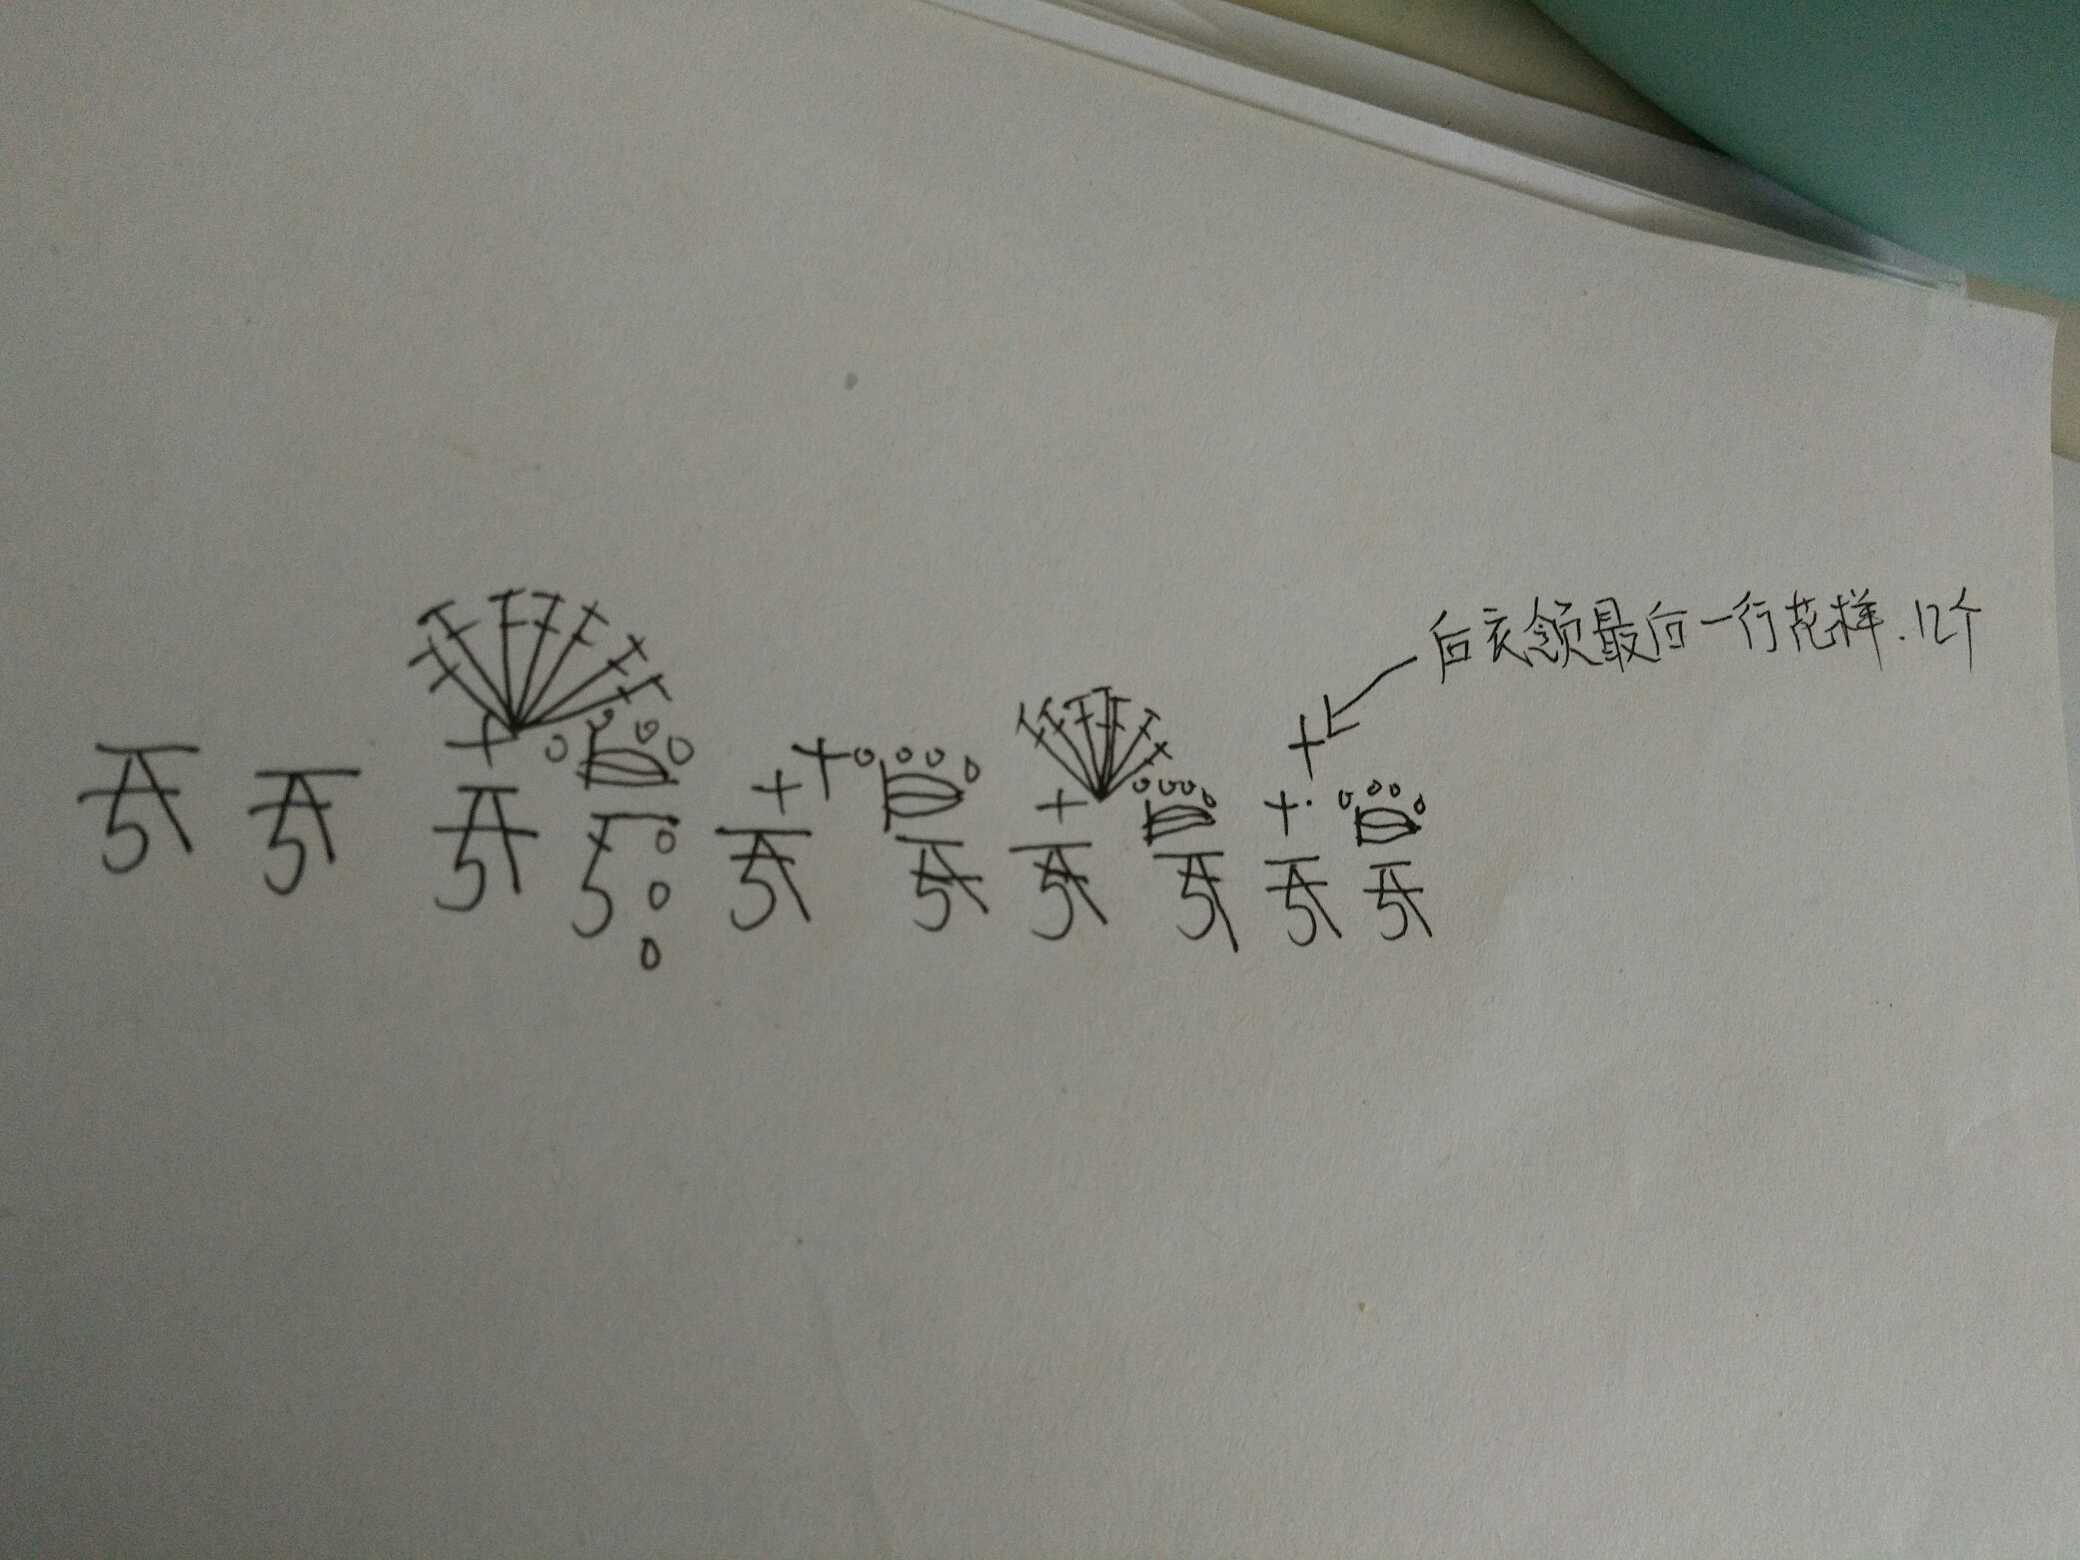 后衣领最后一行花样.12个